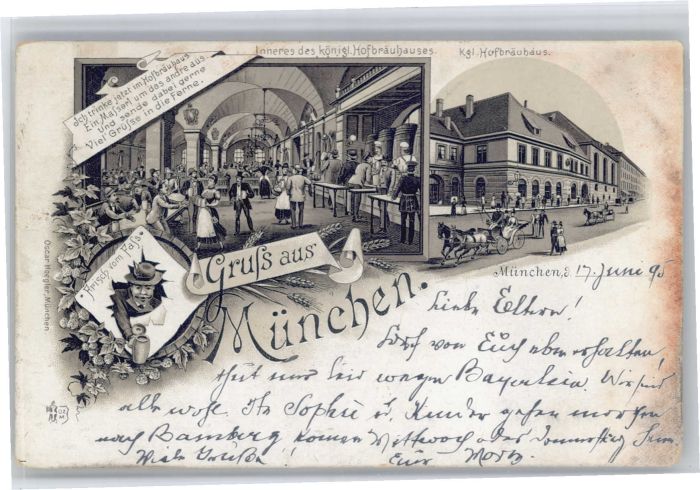 Inneres des königl. Hofbräuhauses.
Kgl. Hofbräuhaus.
Ich trinke jetzt im Hofbräuhaus
Ein Masserl um das andre aus
Und sende dabei gerne
Viel Grüsse in die Ferne.
Frisch vom Fass.
Gruß aus
München.
Oscar Hoegler, München
München, d. 17. Juni 95
Liebe Eltern!
von Euch eben erhalten,
thut mir leid wegen Wir sind
alle wohl. Sophie u. Kinder gehen morgen
nach Bamberg, kommen Mittwoch oder Donnerstag
Viele Grüße! Euer